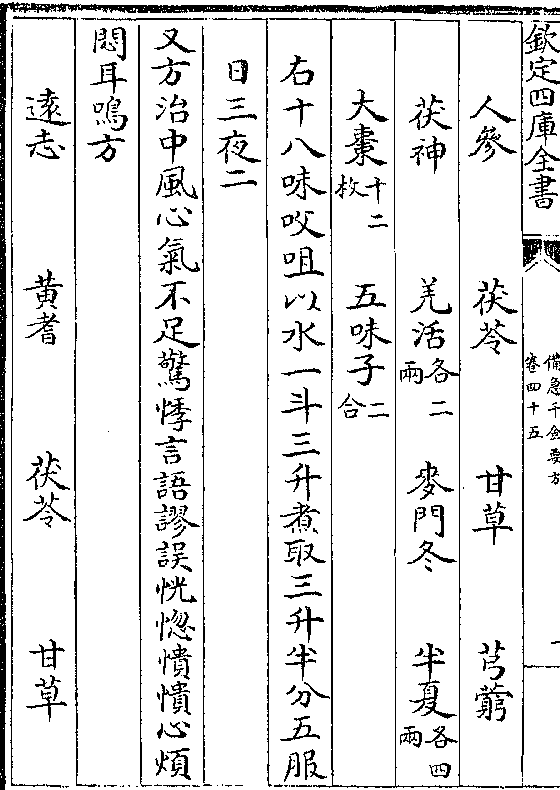 欽定四庫全書
備急千金要方
卷四十五
人參 茯苓 甘草 芎藭
茯神 羌活各二兩 麥門冬 半夏各四兩
大棗十二枚 五味子二合
右十八味㕮咀以水一斗三升煮取三升半分五服
日三夜二
又方治中風心氣不足驚悸言語謬誤恍惚憒憒心煩
悶耳鳴方
遠志 黃耆 茯苓 甘草